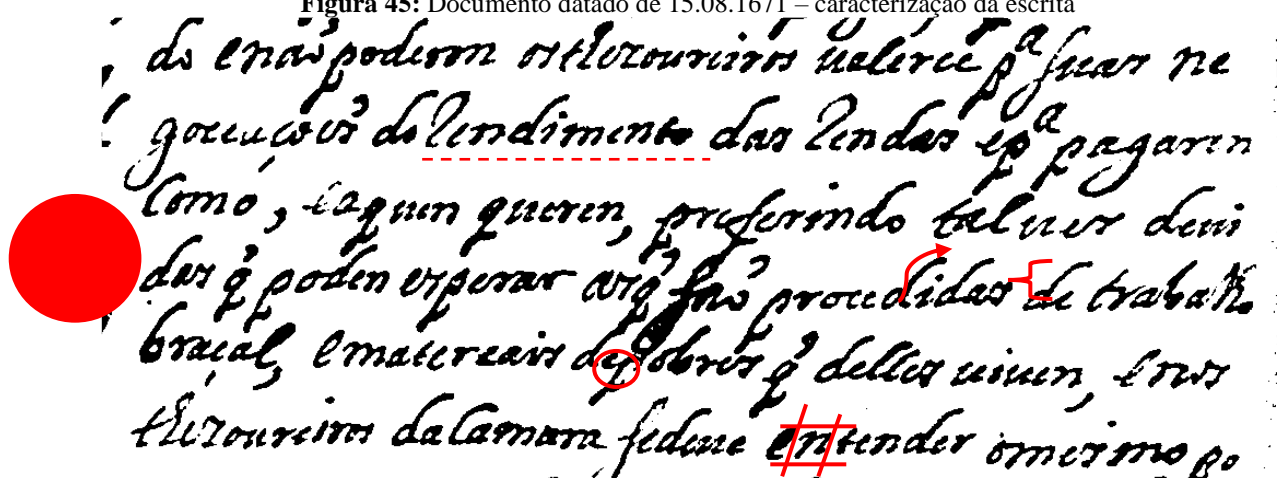 Figura 45: Documento datado de 15.08.1671 – caracterização da escrita
do e não podeom os thezoureiros ualerce pª suas ne
goceacois do Rendimento das Rendas e pª pagaren
Como, e aquen queren, preferindo tal ues deui
das q̃ poden esperar as q̃ são procedidas de trabalho
braçal, e matereais de pobres q̃ delles uiuen, e nos
thezoureiros da Camara se deue entender o mesmo po